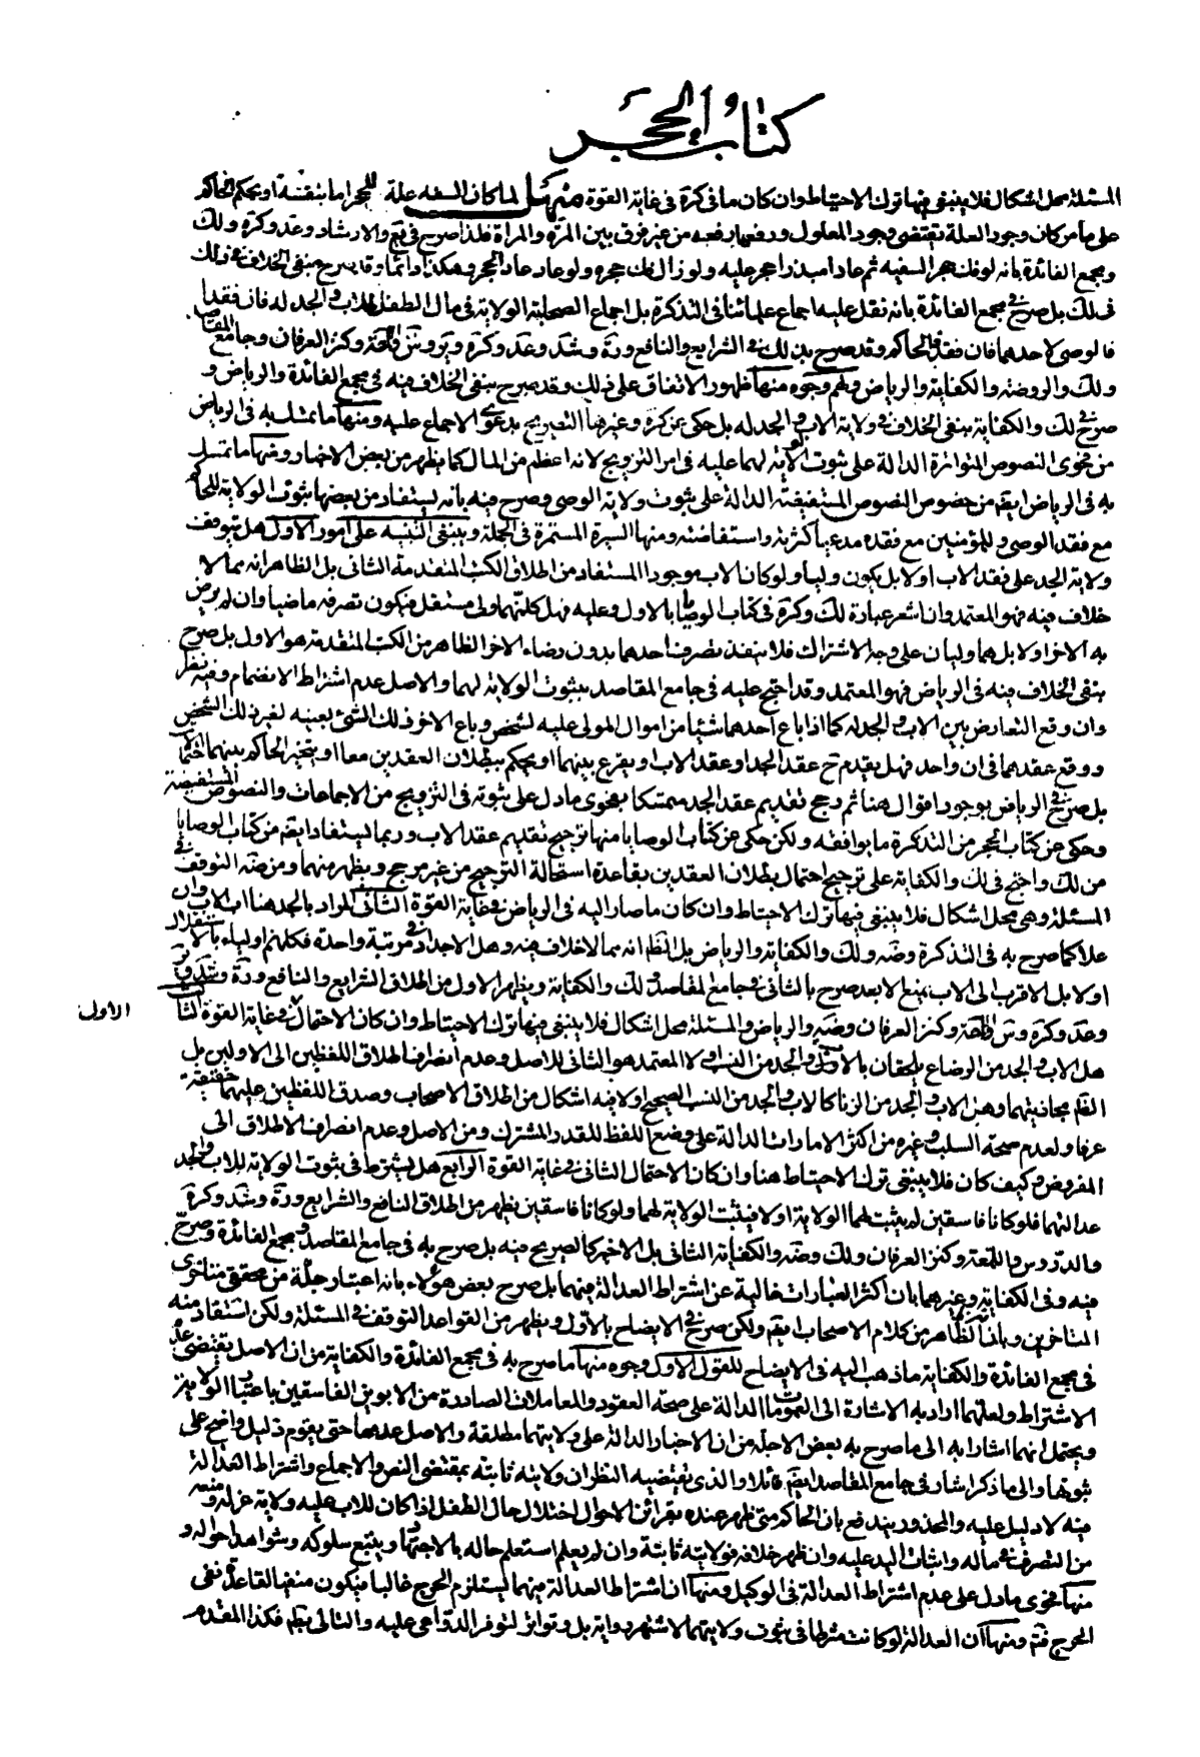 كتاب الحجر
المسئلة محل اشكال فلا ينبغي فيها ترك الاحتياط وان كان ما في كرة في غاية القوة منهل لما كان السفه علة للحجر اما بنفسه او بحكم الحاكم
على ما مر كان وجود العلة يقتضى وجود المعلول ورفعها رفعه من غير فرق بين المرة والمراة فلذا صرح في يع والارشاد وعد وكرة ولك
ومجمع الفائدة بانه لو فك حجر السفيه ثم عاد مبذرا حجر عليه ولو زال فك حجره ولو عاد عاد الحجر وهكذا دائما وقد صرح بنفى الخلاف في ذلك
في لك بل صرح في مجمع الفائدة بانه نقل عليه اجماع علمائنا في التذكرة بل اجماع الصحابة الولاية في مال الطفل للاب والجد له فان فقدا
فالوصى لاحدهما فان فقد فالحاكم وقد صرح بذلك في الشرايع والنافع ورة وشد وعد وكرة و وس واللمعة وكنز العرفان وجامع المقاصد
ولك والروضة والكفاية والرياض ولهم وجوه منها ظهور الاتفاق على ذلك وقد صرح بنفى الخلاف فيه في مجمع الفائدة والرياض و
صرح في لك والكفاية بنفى الخلاف في ولاية الاب والجد له بل حكى عن كرة وغيرها التصريح بدعوى الاجماع عليه ومنها ما تمسك به في الرياض
من فحوى النصوص المتواترة الدالة على ثبوت الولاية لهما عليه في امر التزويج لانه اعظم من المال كما يظهر من بعض الاخبار ومنها ما تمسك
به في الرياض ايضم من خصوص النصوص المستفيضة الدالة على ثبوت ولاية الوصى وصرح فيه بانه يستفاد من بعضها ثبوت الولاية للحاكم
مع فقد الوصى وللمؤمنين مع فقده مدعيا كثرته واستفاضته ومنها السيرة المستمرة في الجملة وينبغى التنبيه على امور الاول هل يتوقف
ولاية الجد على فقد الاب او لا بل يكون وليا ولو كان الاب موجودا المستفاد من اطلاق الكتب المتقدمة الثانى بل الظاهر انه مما لا
خلاف فيه فهو المعتمد وان اشعر عبارة لك وكرة في كتاب الوصايا بالاول وعليه فهل كل منهما ولى مستقل فيكون تصرفه ماضيا وان لم يرض
به الاخر او لا بل هما وليان على وجه الاشتراك فلا ينفذ تصرف احدهما بدون رضاء الاخر الظاهر من الكتب المتقدمة هو الاول بل صرح
بنفى الخلاف فيه في الرياض فهو المعتمد وقد احتج عليه في جامع المقاصد بثبوت الولاية لهما والاصل عدم اشتراط الانضمام وفيه نظر
وان وقع التعارض بين الاب والجد له كما اذا باع احدهما شيئا من اموال المولى عليه لشخص وباع الاخر ذلك الشئ بعينه لغير ذلك الشخص
ووقع عقدهما في ان واحد فهل يقدم ح عقد الجد او عقد الاب او يقرع بينهما او يحكم ببطلان العقدين معا او يتخير الحاكم بينهما
بل صرح في الرياض بوجود اقوال هنا ثم رجح تقديم عقد الجد متمسكا بفحوى ما دل على ثبوته في التزويج من الاجماعات والنصوص المستفيضة
وحكى عن كتاب الحجر من التذكرة ما يوافقه ولكن حكى عن كتاب الوصايا منها ترجيح تقديم عقد الاب وربما يستفاد ايضم من كتاب الوصايا
من لك واحتج في لك والكفاية على ترجيح احتمال بطلان العقدين بقاعدة استحالة الترجيح من غير مرجح ويظهر منهما ومن ضه التوقف في
المسئلة وهى محل اشكال فلا ينبغى فيها ترك الاحتياط وان كان ما صار اليه في الرياض في غاية القوة الثانى المراد بالجد هنا اب الاب وان
علا كما صرح به في التذكرة وضه ولك والكفاية والرياض بل الظ انه مما لا خلاف فيه وهل الاجداد في مرتبة واحدة فكلهم اولياء بالاستقلال
او لا بل الاقرب الى الاب يمنع الابعد صرح بالثانى في جامع المقاصد ولك والكفاية ويظهر الاول من اطلاق الشرايع والنافع ورة وشد
وعد وكرة وس واللمعة وكنز العرفان وضه والرياض والمسئلة محل اشكال فلا ينبغى فيها ترك الاحتياط وان كان الاحتمال في غاية القوة الثالث
الاول
هل الاب والجد من الرضاع يلحقان بالاب والجد من النسب او لا المعتمد هو الثانى للاصل وعدم انصراف اطلاق اللفظين الى الاولين بل
الظ مجازيتهما وهل الاب والجد من الزنا كالاب والجد من النسب الصحيح او لا فيه اشكال من اطلاق الاصحاب وصدق اللفظين عليهما حقيقة
عرفا ولعدم صحة السلب وغيره من اكثر الامارات الدالة على وضع اللفظ للقدر المشترك ومن الاصل وعدم انصراف الاطلاق الى
المفروض وكيف كان فلا ينبغى ترك الاحتياط هنا وان كان الاحتمال الثانى في غاية القوة الرابع هل يشترط في ثبوت الولاية للاب والجد
عدالتهما فلو كانا فاسقين لم يثبت لهما الولاية او لا فيثبت الولاية لهما ولو كانا فاسقين يظهر من اطلاق النافع والشرايع ورة وشد وكرة
والدروس واللمعة وكنز العرفان ولك وضه والكفاية الثانى بل الاخير كالصريح فيه بل صرح به في جامع المقاصد ومجمع الفائدة وصرح
فيه وفى الكفاية وغيرهما بان اكثر العبارات خالية عن اشتراط العدالة فيهما بل صرح بعض هؤلاء بانه اعتبار جلة من محققى متاخرى
المتاخرين وبانه الظاهر من كلام الاصحاب ايضم ولكن صرح في الايضاح بالاول ويظهر من القواعد التوقف في المسئلة ولكن استفاد منه
في مجمع الفائدة والكفاية ما ذهب اليه في الايضاح للقول الاول وجوه منها ما صرح به في مجمع الفائدة والكفاية من ان الاصل يقتضى عدم
الاشتراط ولعلهما ارادا به الاشارة الى العمومات الدالة على صحة العقود والمعاملات الصادرة من الابوين الفاسقين باعتبار الولاية
ويحتمل انهما اشارا به الى ما صرح به بعض الاجلة من ان الاخبار الدالة على ولايتهما مطلقة والاصل عدمها حتى يقوم دليل واضح على
ثبوتها والى ما ذكر اشار في جامع المقاصد ايضم قائلا والذى يقتضيه النظر ان ولايته ثابتة بمقتضى النص والاجماع واشتراط العدالة
فيه لا دليل عليه والمحذور يندفع بان الحاكم متى ظهر عنده بقرائن الاحوال اختلال حال الطفل اذا كان للاب عليه ولاية عزله ومنعه
من التصرف في ماله واثبات اليد عليه وان ظهر خلافه فولايته ثابتة وان لم يعلم استعلم حاله بالاجتهاد ويتبع سلوكه وشواهد احواله و
منها فحوى ما دل على عدم اشتراط العدالة في الوكيل ومنها ان اشتراط العدالة فيهما يستلزم الحرج غالبا فيكون منفيا لقاعدة نفى
الحرج فتم ومنها ان العدالة لو كانت شرطا في ثبوت ولايتهما لاشتهر رواية بل وتواتر لتوفر الدواعى عليه والتالى بط فكذا المقدم